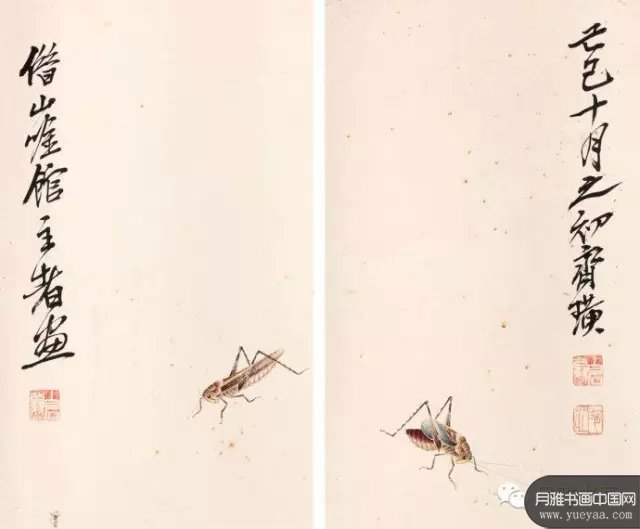 己巳十月之初齊璜
借山唫館主者畫
月雅书画中国网
www.yueyaa.com